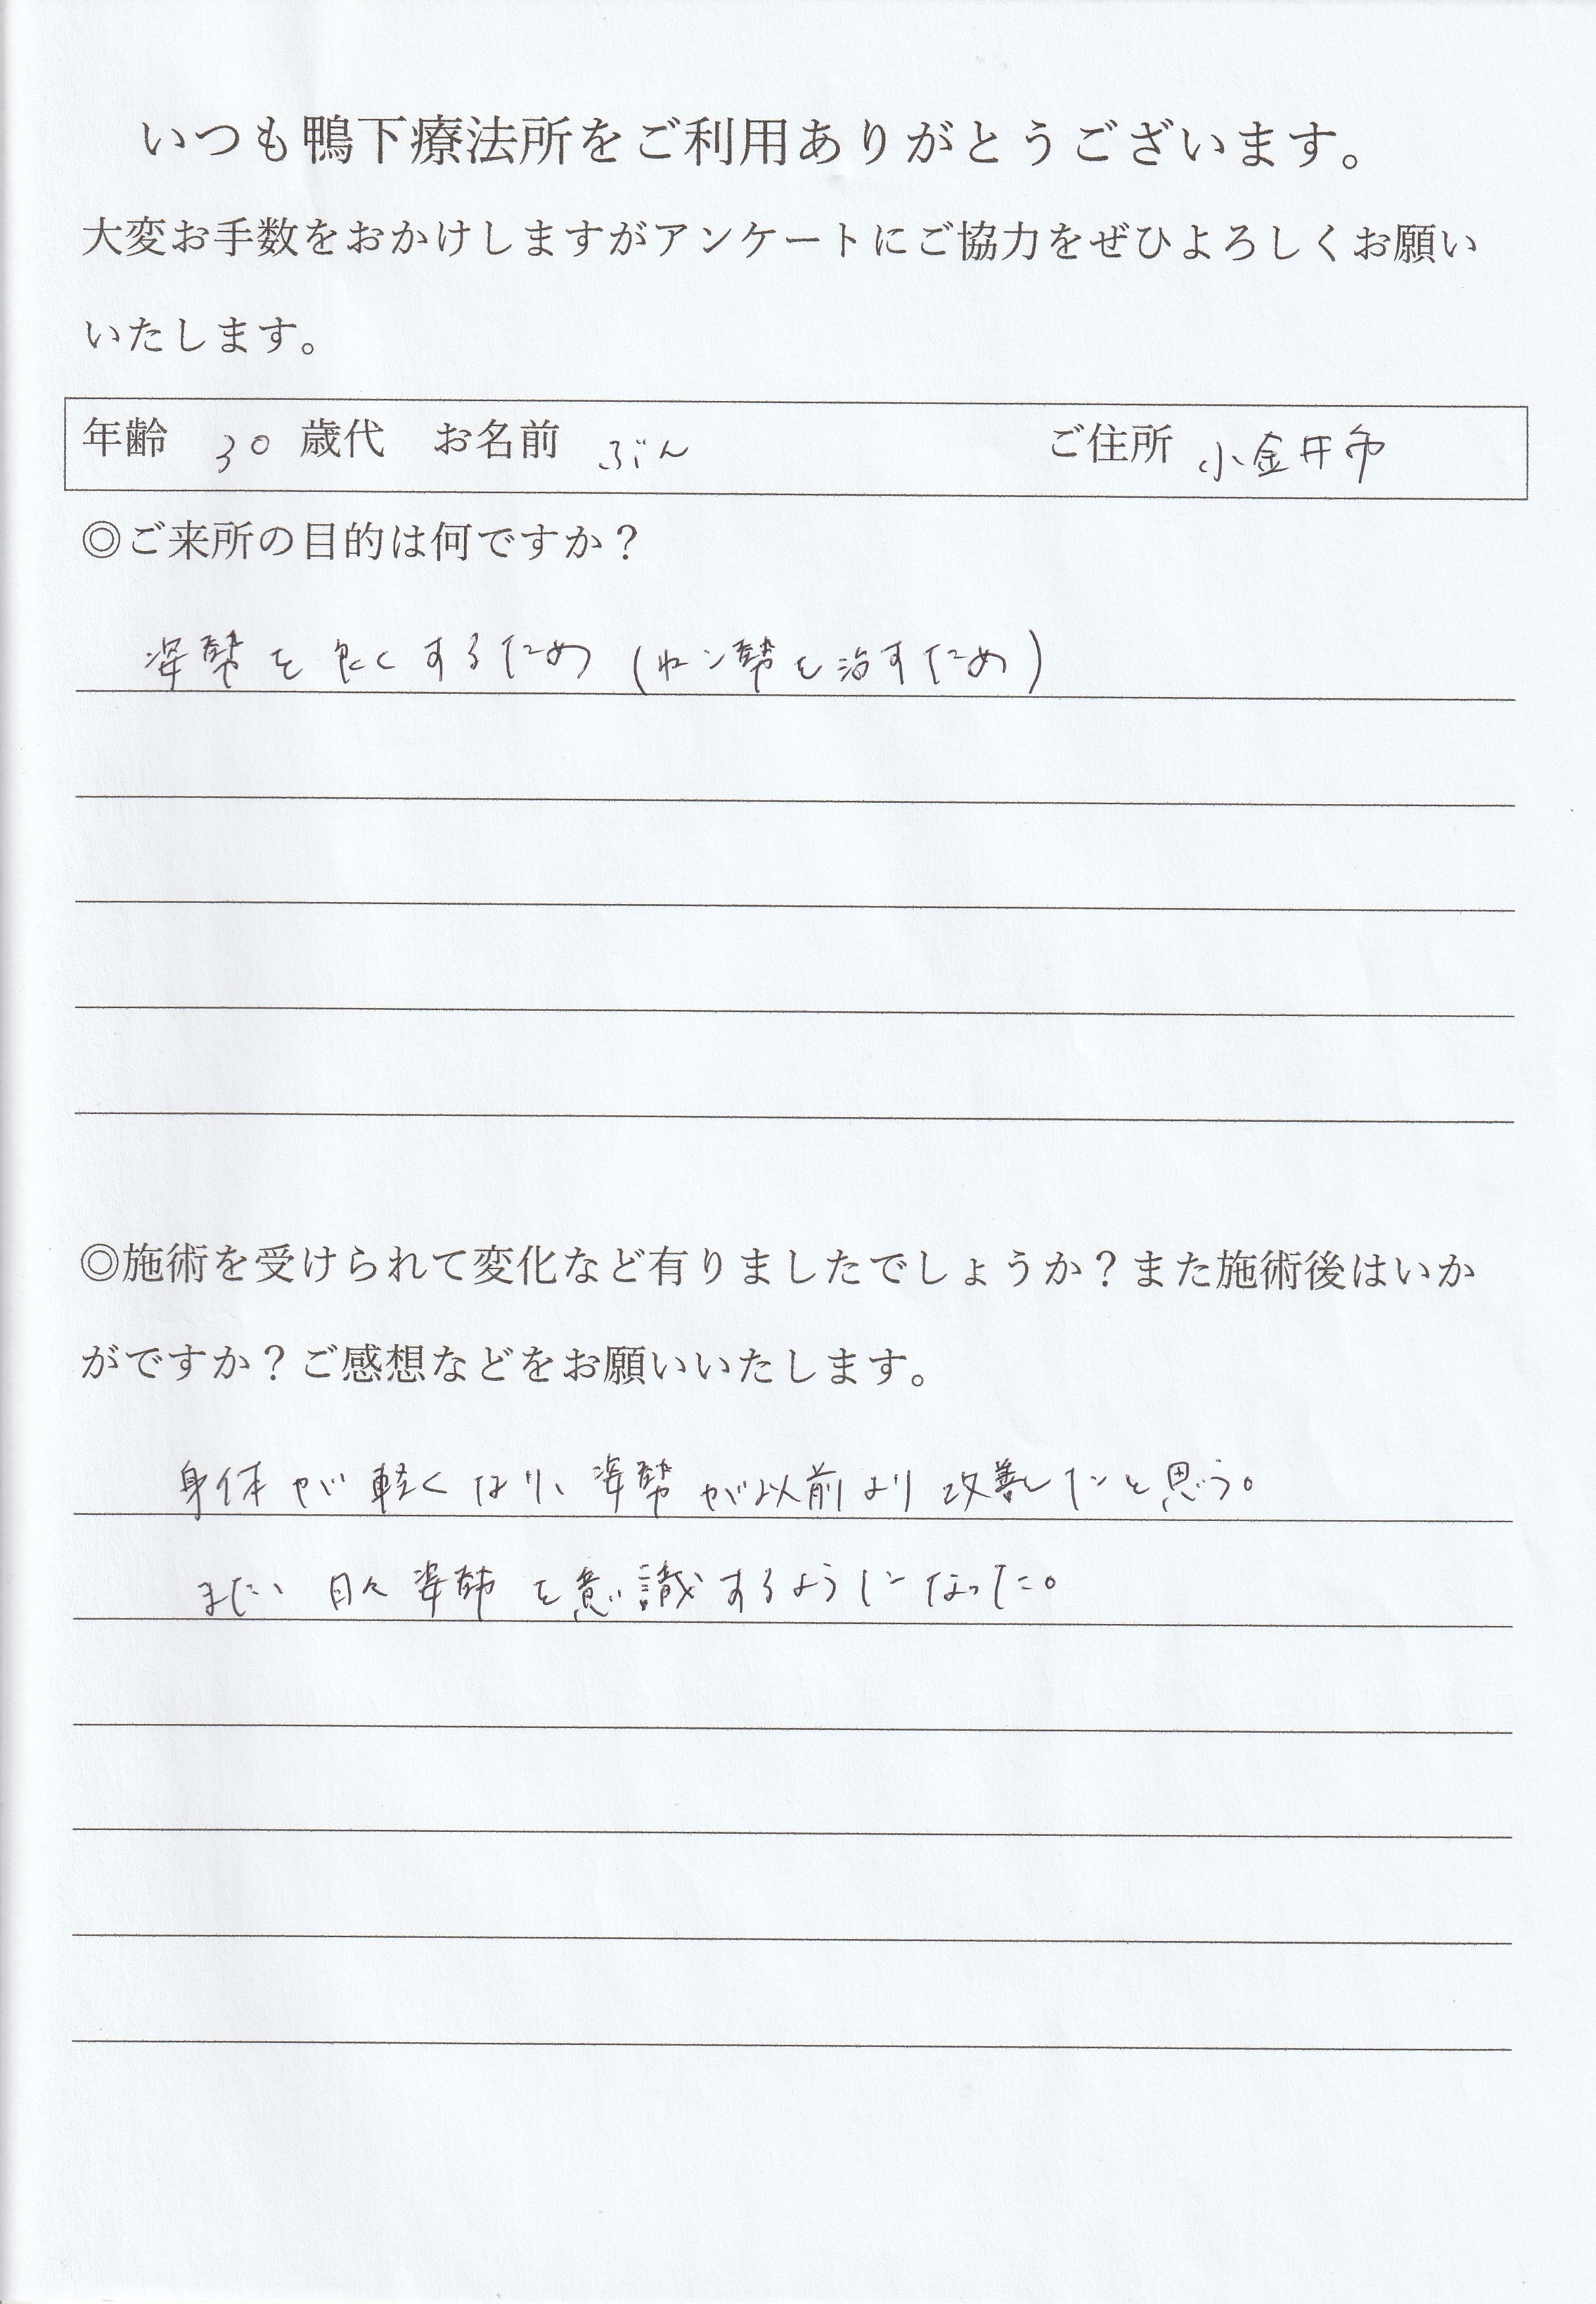 いつも鴨下療法所をご利用ありがとうございます。
大変お手数をおかけしますがアンケートにご協力をぜひよろしくお願い
いたします。
年齢 30 歳代 お名前 ぶん ご住所 小金井市
◎ご来所の目的は何ですか?
姿勢を良くするため(ネコ勢を治すため)
◎施術を受けられて変化など有りましたでしょうか?また施術後はいか
がですか?ご感想などをお願いいたします。
身体が軽くなり、姿勢が以前より改善したと思う。
また、日々姿勢を意識するようになった。